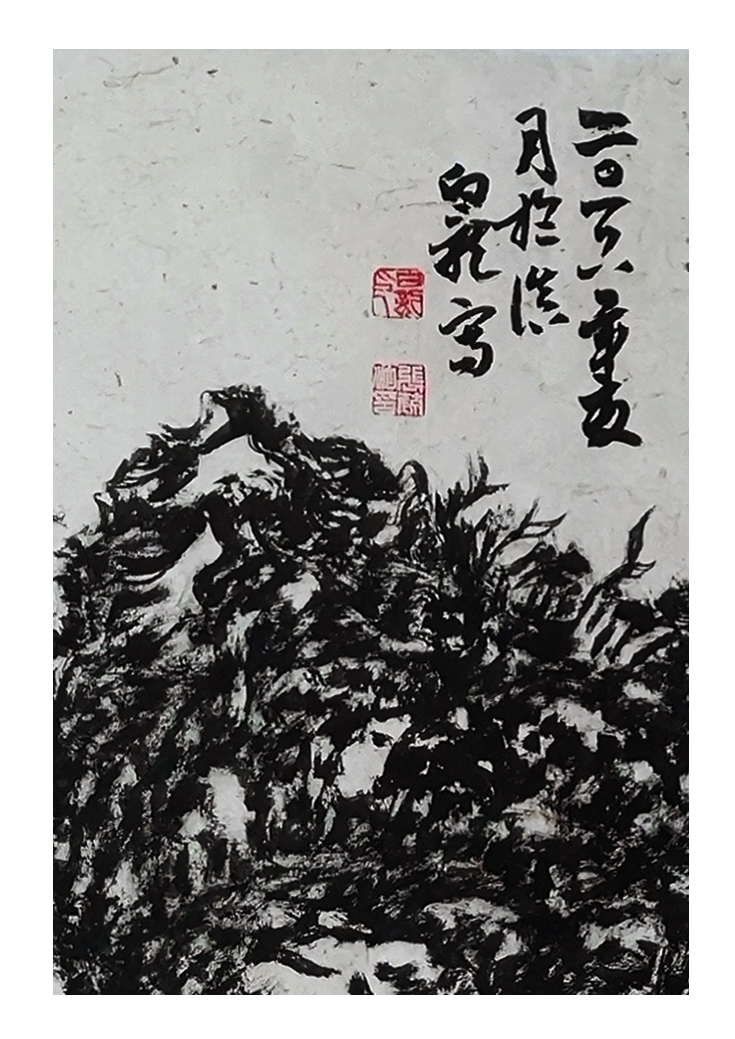 二〇一六年夏
月於滇
白龍寫